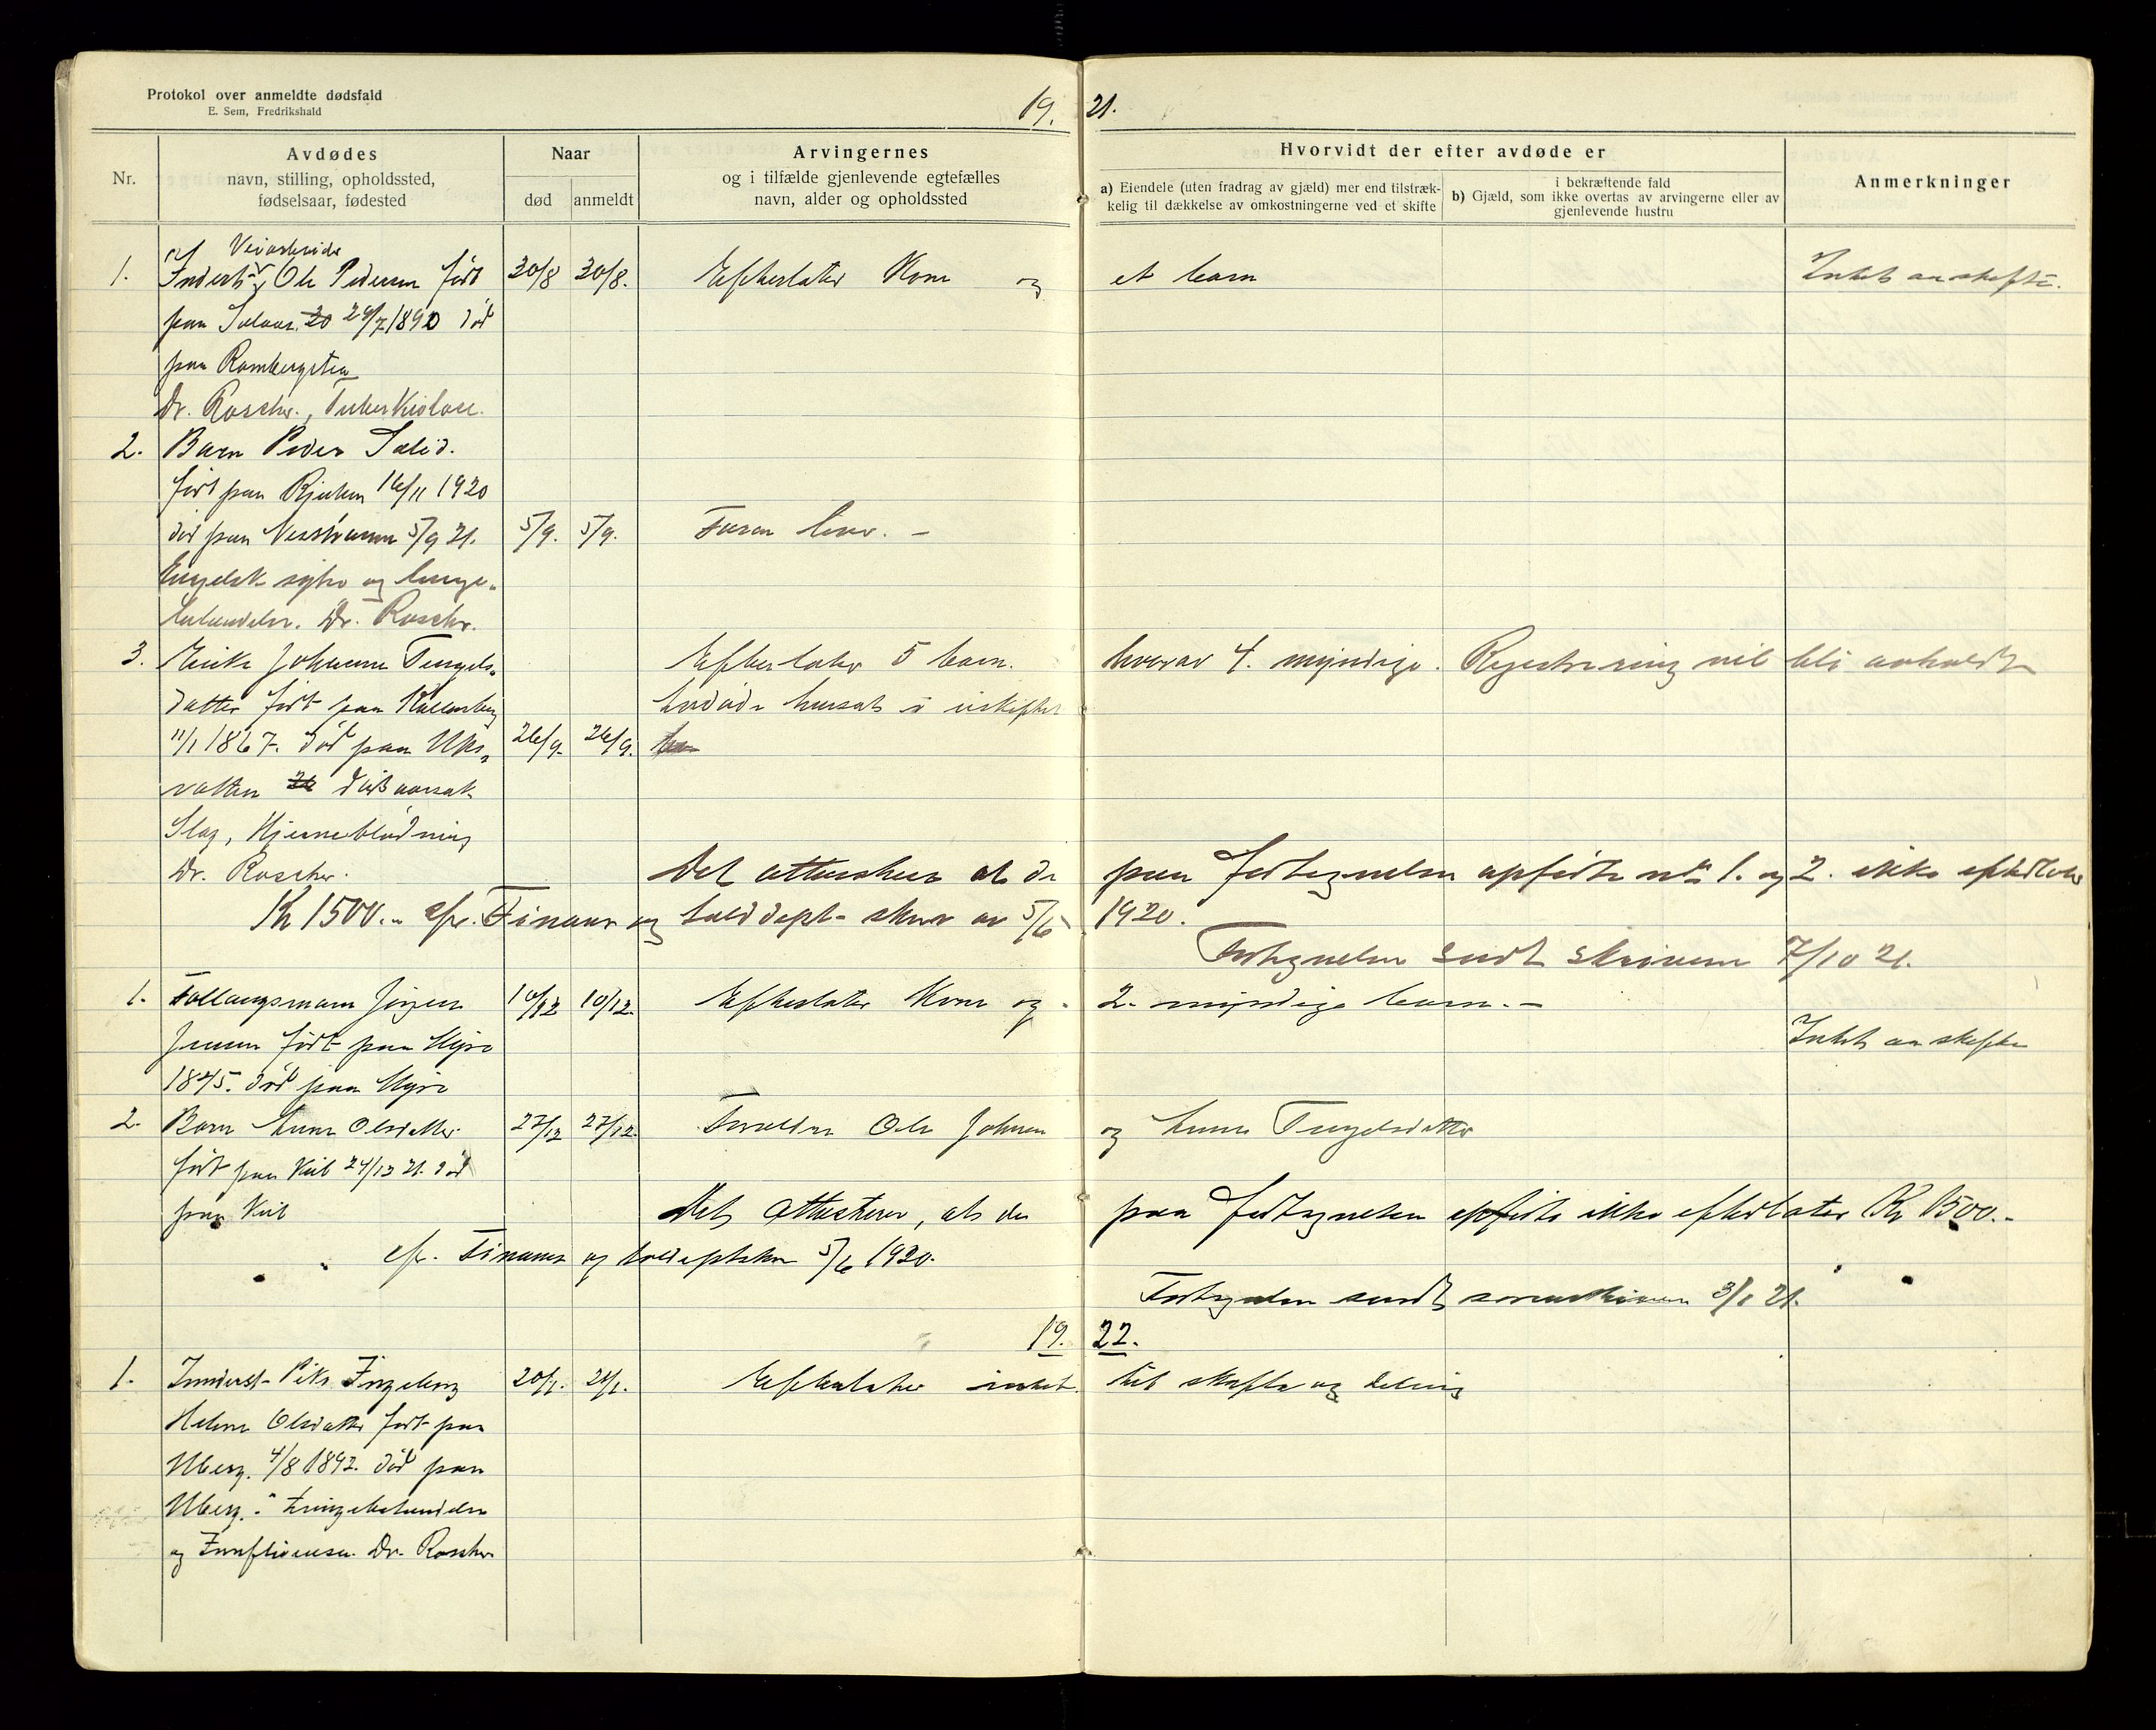 Protokol over anmeldte dødsfald
E. Sem, Fredrikshald
19. 21.
Nr.
Avdødes
navn, stilling, opholdssted,
fødselsaar, fødested
Naar
død anmeldt
Arvingernes
og i tilfælde gjenlevende egtefælles
navn, alder og opholdssted
Hvorvidt der efter avdøde er
a) Eiendele (uten fradrag av gjæld) mer end tilstræk-
kelig til dækkelse av omkostningerne ved et skifte
i bekræftende fald
b) Gjæld, som ikke overtas av arvingerne eller av
gjenlevende hustru
Anmerkninger
Veiarbeider
1. Inderst Ole Pedersen født 30/8 30/8. Efterlater Kone og et barn Intet aa skifte.
paa 20 29/7 1890 død
paa Rambergsten
Dr. Roscher.,
2. Barn Peder
født paa Rjuken 16/11 1920
død paa 5/9 21. 5/9. 5/9. Faren lever. -
Engelsk syke og lunge-
betændelse. Dr. Roscher.
3. Johanne Tengels- Efterlater 5 barn. hvorav 4. myndige. Registrering vil bli avholdt
datter født paa i uskiftet
11/1 1867. død paa 26/9. 26/9.
dødsaarsak
Slag, Hjerneblødning
Dr. Roscher.
Det attesteres at de paa fortegnelsen opførte nr 1. og 2. ikke efterlater
Kr 1500.- cfr. Finans og tolddept. skriv av 5/6 1920.
Fortegnelsen sendt skriveren 7/10 21.
1. Jørgen 10/12 10/12. Efterlater Kone og 2. myndige barn. -
Jensen født paa Intet aa skifte
1845. død paa
2. Barn Anne Olsdatter 27/12 27/12. Forældre Ole Johnsen og Anne Tengelsdatter
født paa 24/12 21. død
paa
Det attesteres, at de paa fortegnelsen opførte ikke efterlater Kr 1500.-
cfr. Finans og skr 5/6 1920.
Fortegnelsen sendt sorenskriveren 3/1 21.
19. 22.
1. Inderst Pike Ingeborg 20/1. 21/1. Efterlater intet til skifte og deling
Helene Olsdatter født paa
4/8 1892. død paa
Lungebetændelse
og Influensa. Dr. Roscher